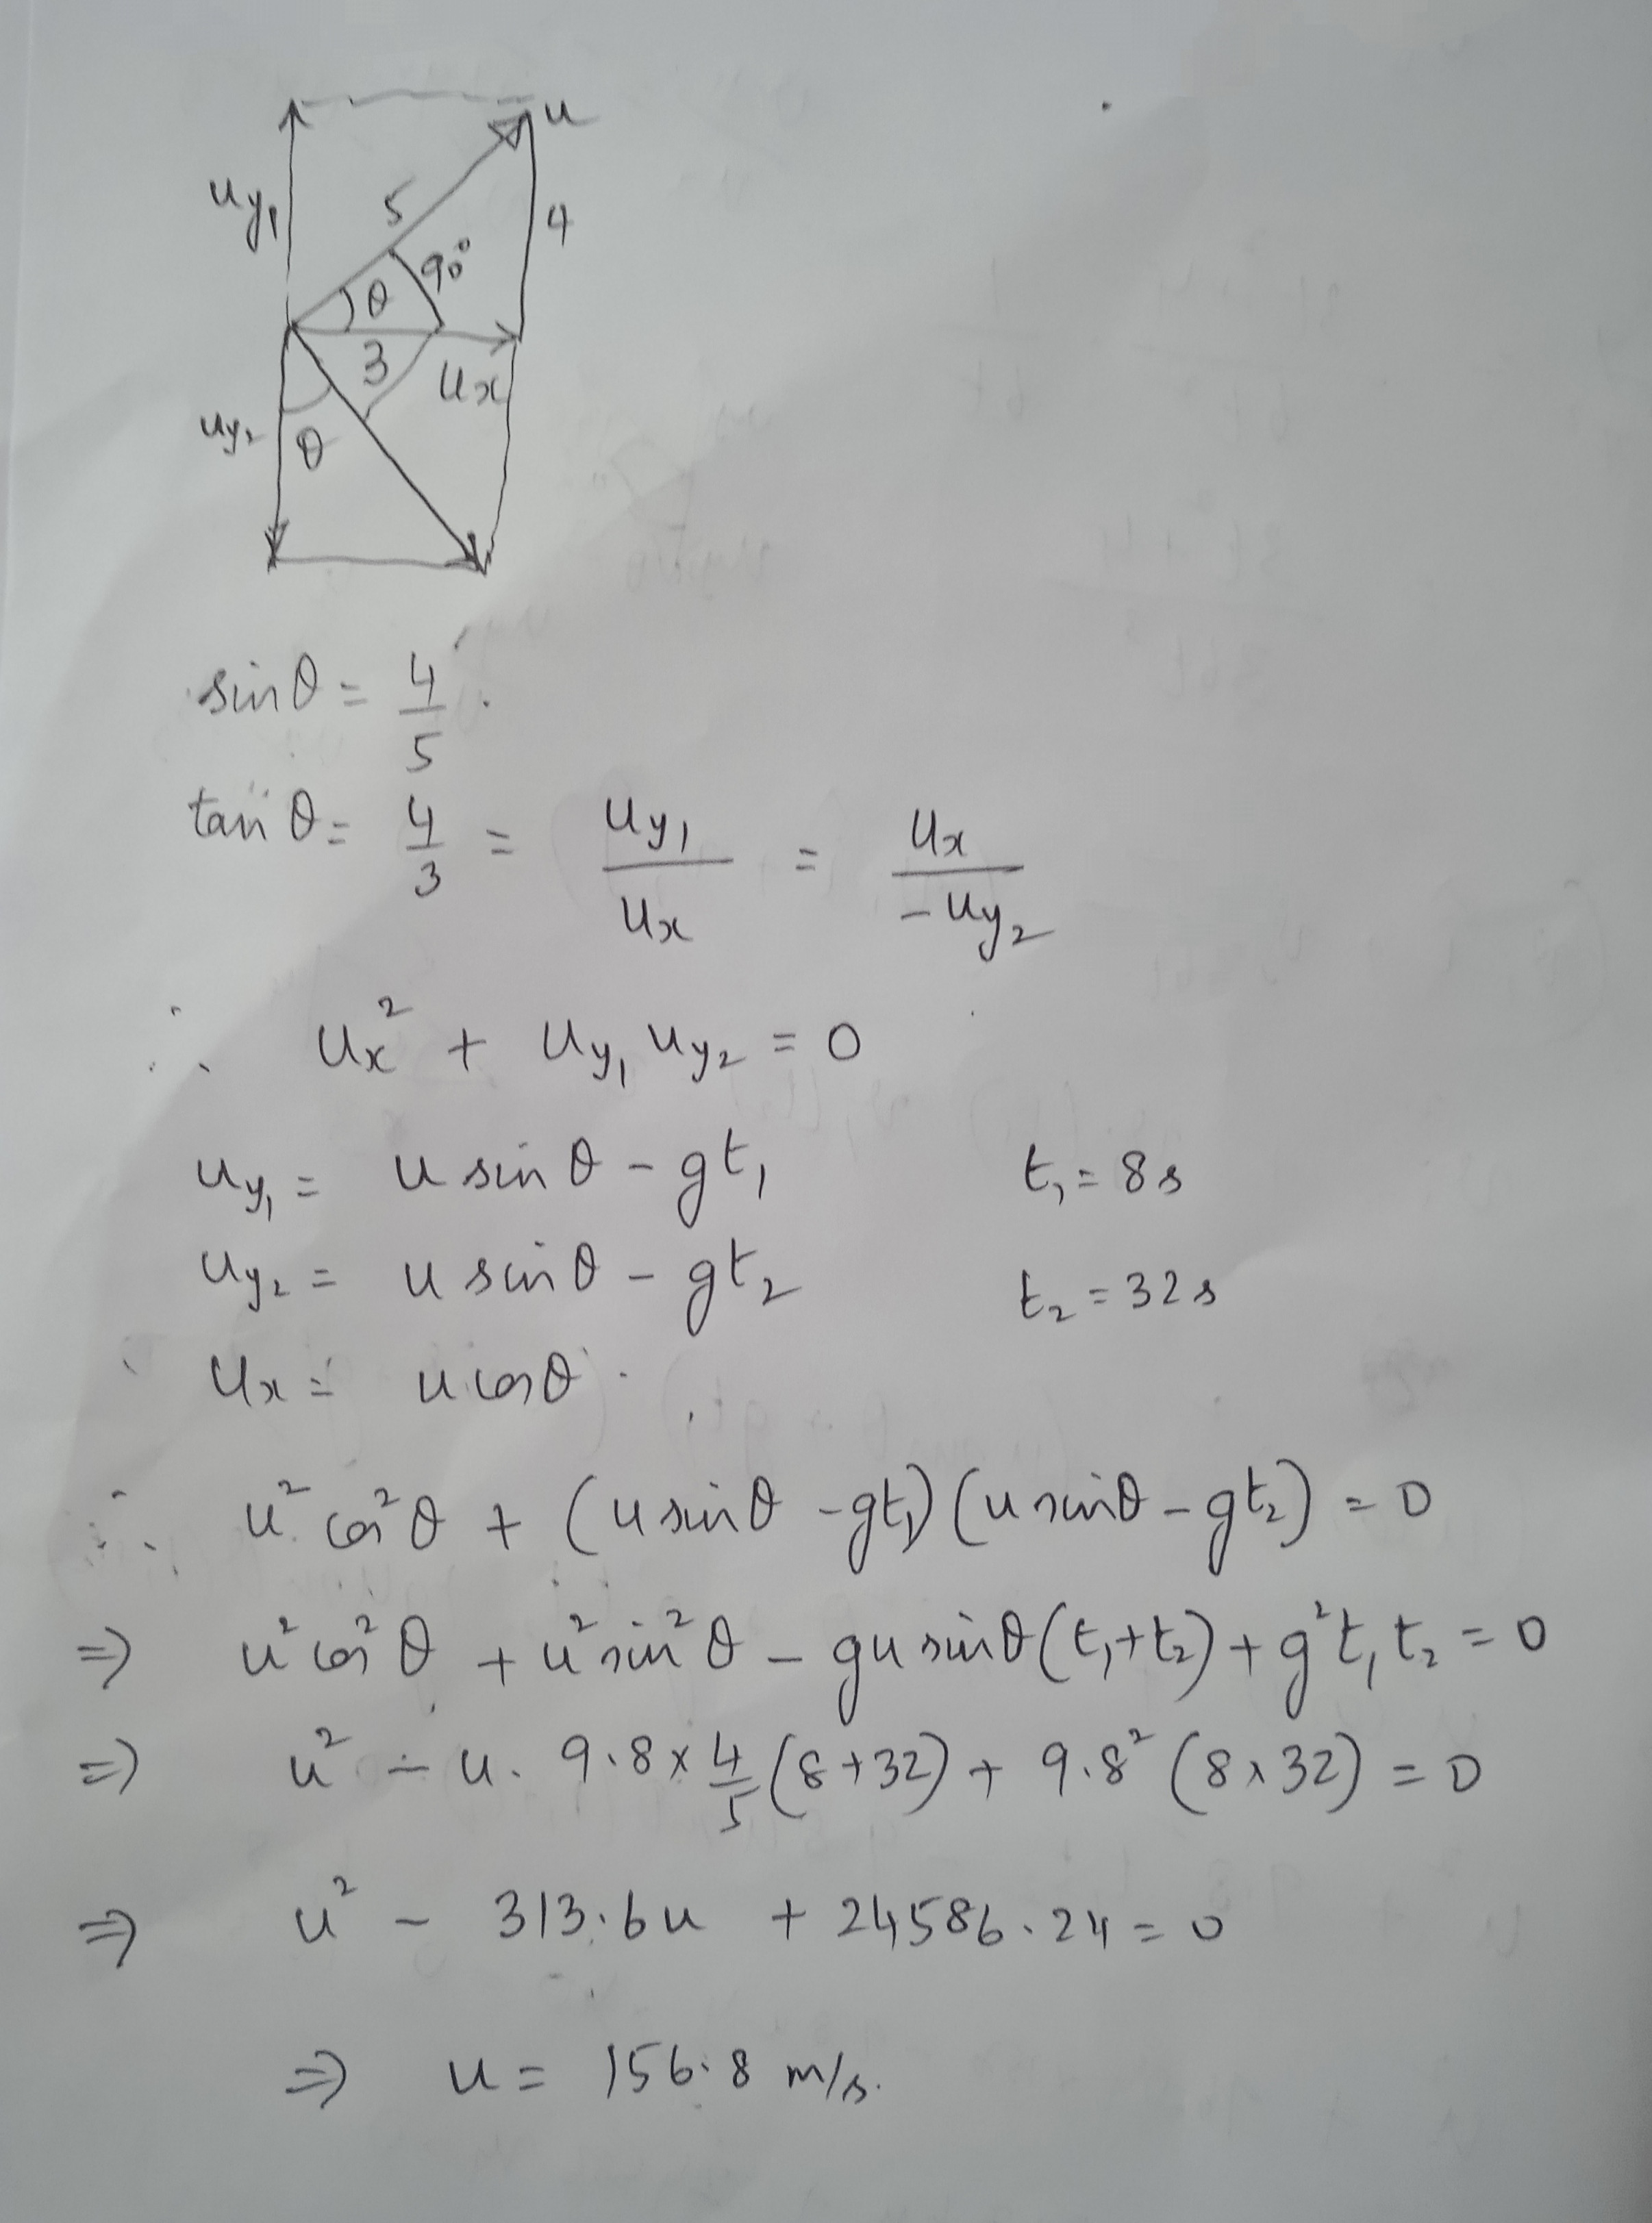 u
uy₁
5
4
90°
θ
3
ux
uy₂
θ
sinθ = 4/5.
tanθ = 4/3 = uy₁/ux = ux/-uy₂
∴ ux² + uy₁ uy₂ = 0
uy₁ = u sinθ - gt₁ t₁ = 8s
uy₂ = u sinθ - gt₂ t₂ = 32s
ux = u cosθ.
∴ u² cos²θ + (u sinθ - gt₁)(u sinθ - gt₂) = 0
⇒ u² cos²θ + u² sin²θ - gu sinθ(t₁+t₂) + g²t₁t₂ = 0
⇒ u² - u. 9.8 x 4/5 (8+32) + 9.8² (8x32) = 0
⇒ u² - 313.6u + 24586.24 = 0
⇒ u = 156.8 m/s.